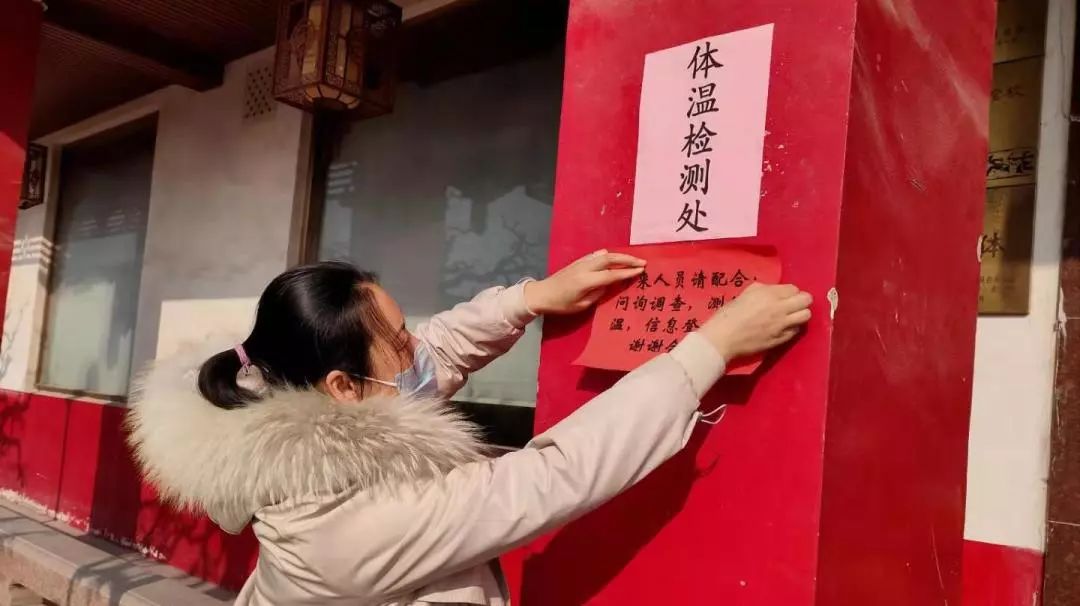 体温检测处
来人员请配合:
问询调查，测
温，信息登
谢谢合